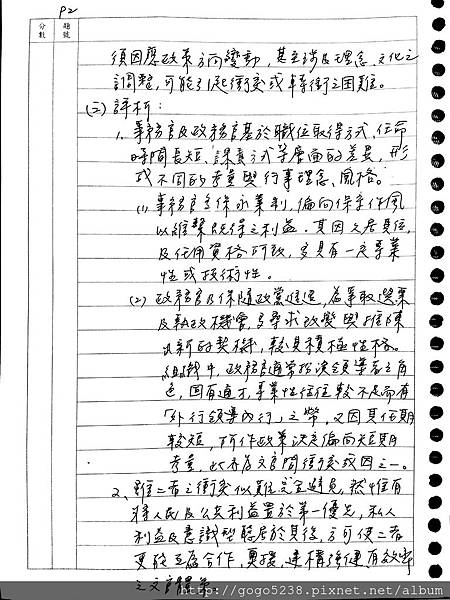 P2
分數
題號
須因應政策方向變動，甚至涉及理念、文化之
調整，可能引起衝突或轉銜之困難。
(三)評析：
1、事務官及政務官基於職位取得方式、任命
時間長短、課責方式等層面的差異，形
成不同的考量與行事理念、風格。
(1)事務官多係永業制，偏向保守作風
以維繫既得之利益。其因久居其位，
及任用資格所致，多具有一定專業
性或技術性。
(2)政務官多係隨政黨進退，為爭取選票
及執政機會，多尋求改變與推陳
出新的契機，較具積極性格。
組織中，政務官通常扮演領導者之角
色，固有通才，專業性往往較不足而有
「外行領導內行」之弊，又因其任期
較短，所作政策決定偏向短期
考量，此亦為文官間衝突成因之一。
2、雖二者之衝突似難完全避免，然惟有
將人民及公共利益置於第一優先，私人
利益及意識型態居於其後，方可使二者
更於互為合作、奧援，建構強健、有效率
之文官體系
http://gogo5238.pixnet.net/album